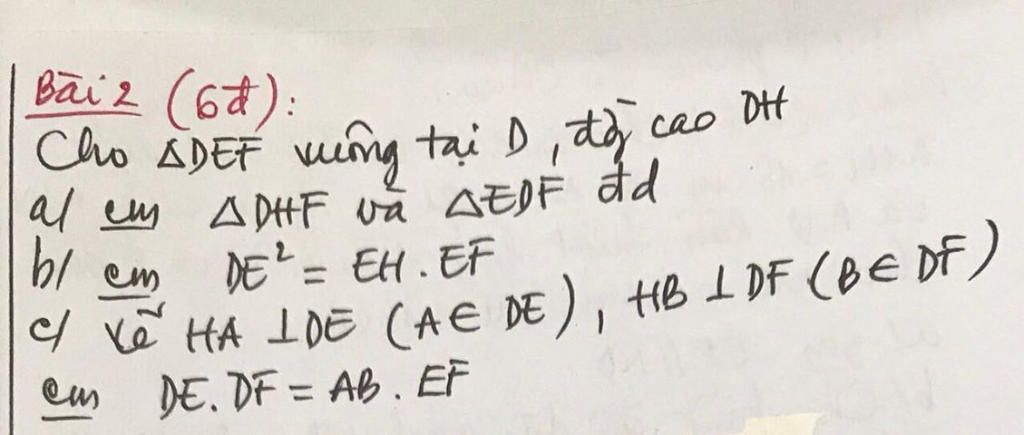 Bài 2 (6đ):
Cho ΔDEF vuông tại D, đg̀ cao DH
a/ cm ΔDHF và ΔEDF đd
b/ cm DE² = EH . EF
c/ Vẽ HA ⊥ DE (A ∈ DE), HB ⊥ DF (B ∈ DF)
cm DE. DF = AB . EF